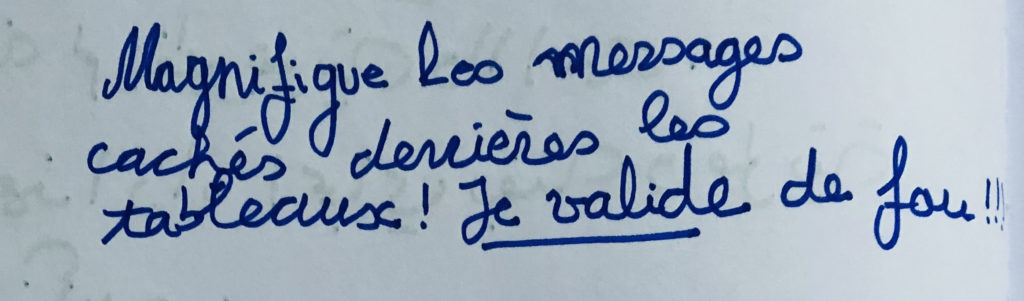 Magnifique les messages
cachés derrières les
tableaux! Je valide de fou!!!